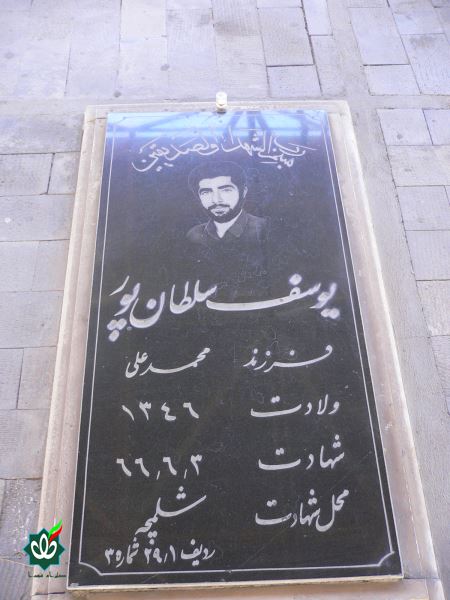 بسم رب الشهداء والصدیقین
یوسف سلطان پور
فرزند محمد علی
ولادت ۱۳۴۶
شهادت ۶۶٫۶٫۳
محل شهادت شلمچه
ردیف ۲۹٫۱ شماره ۳